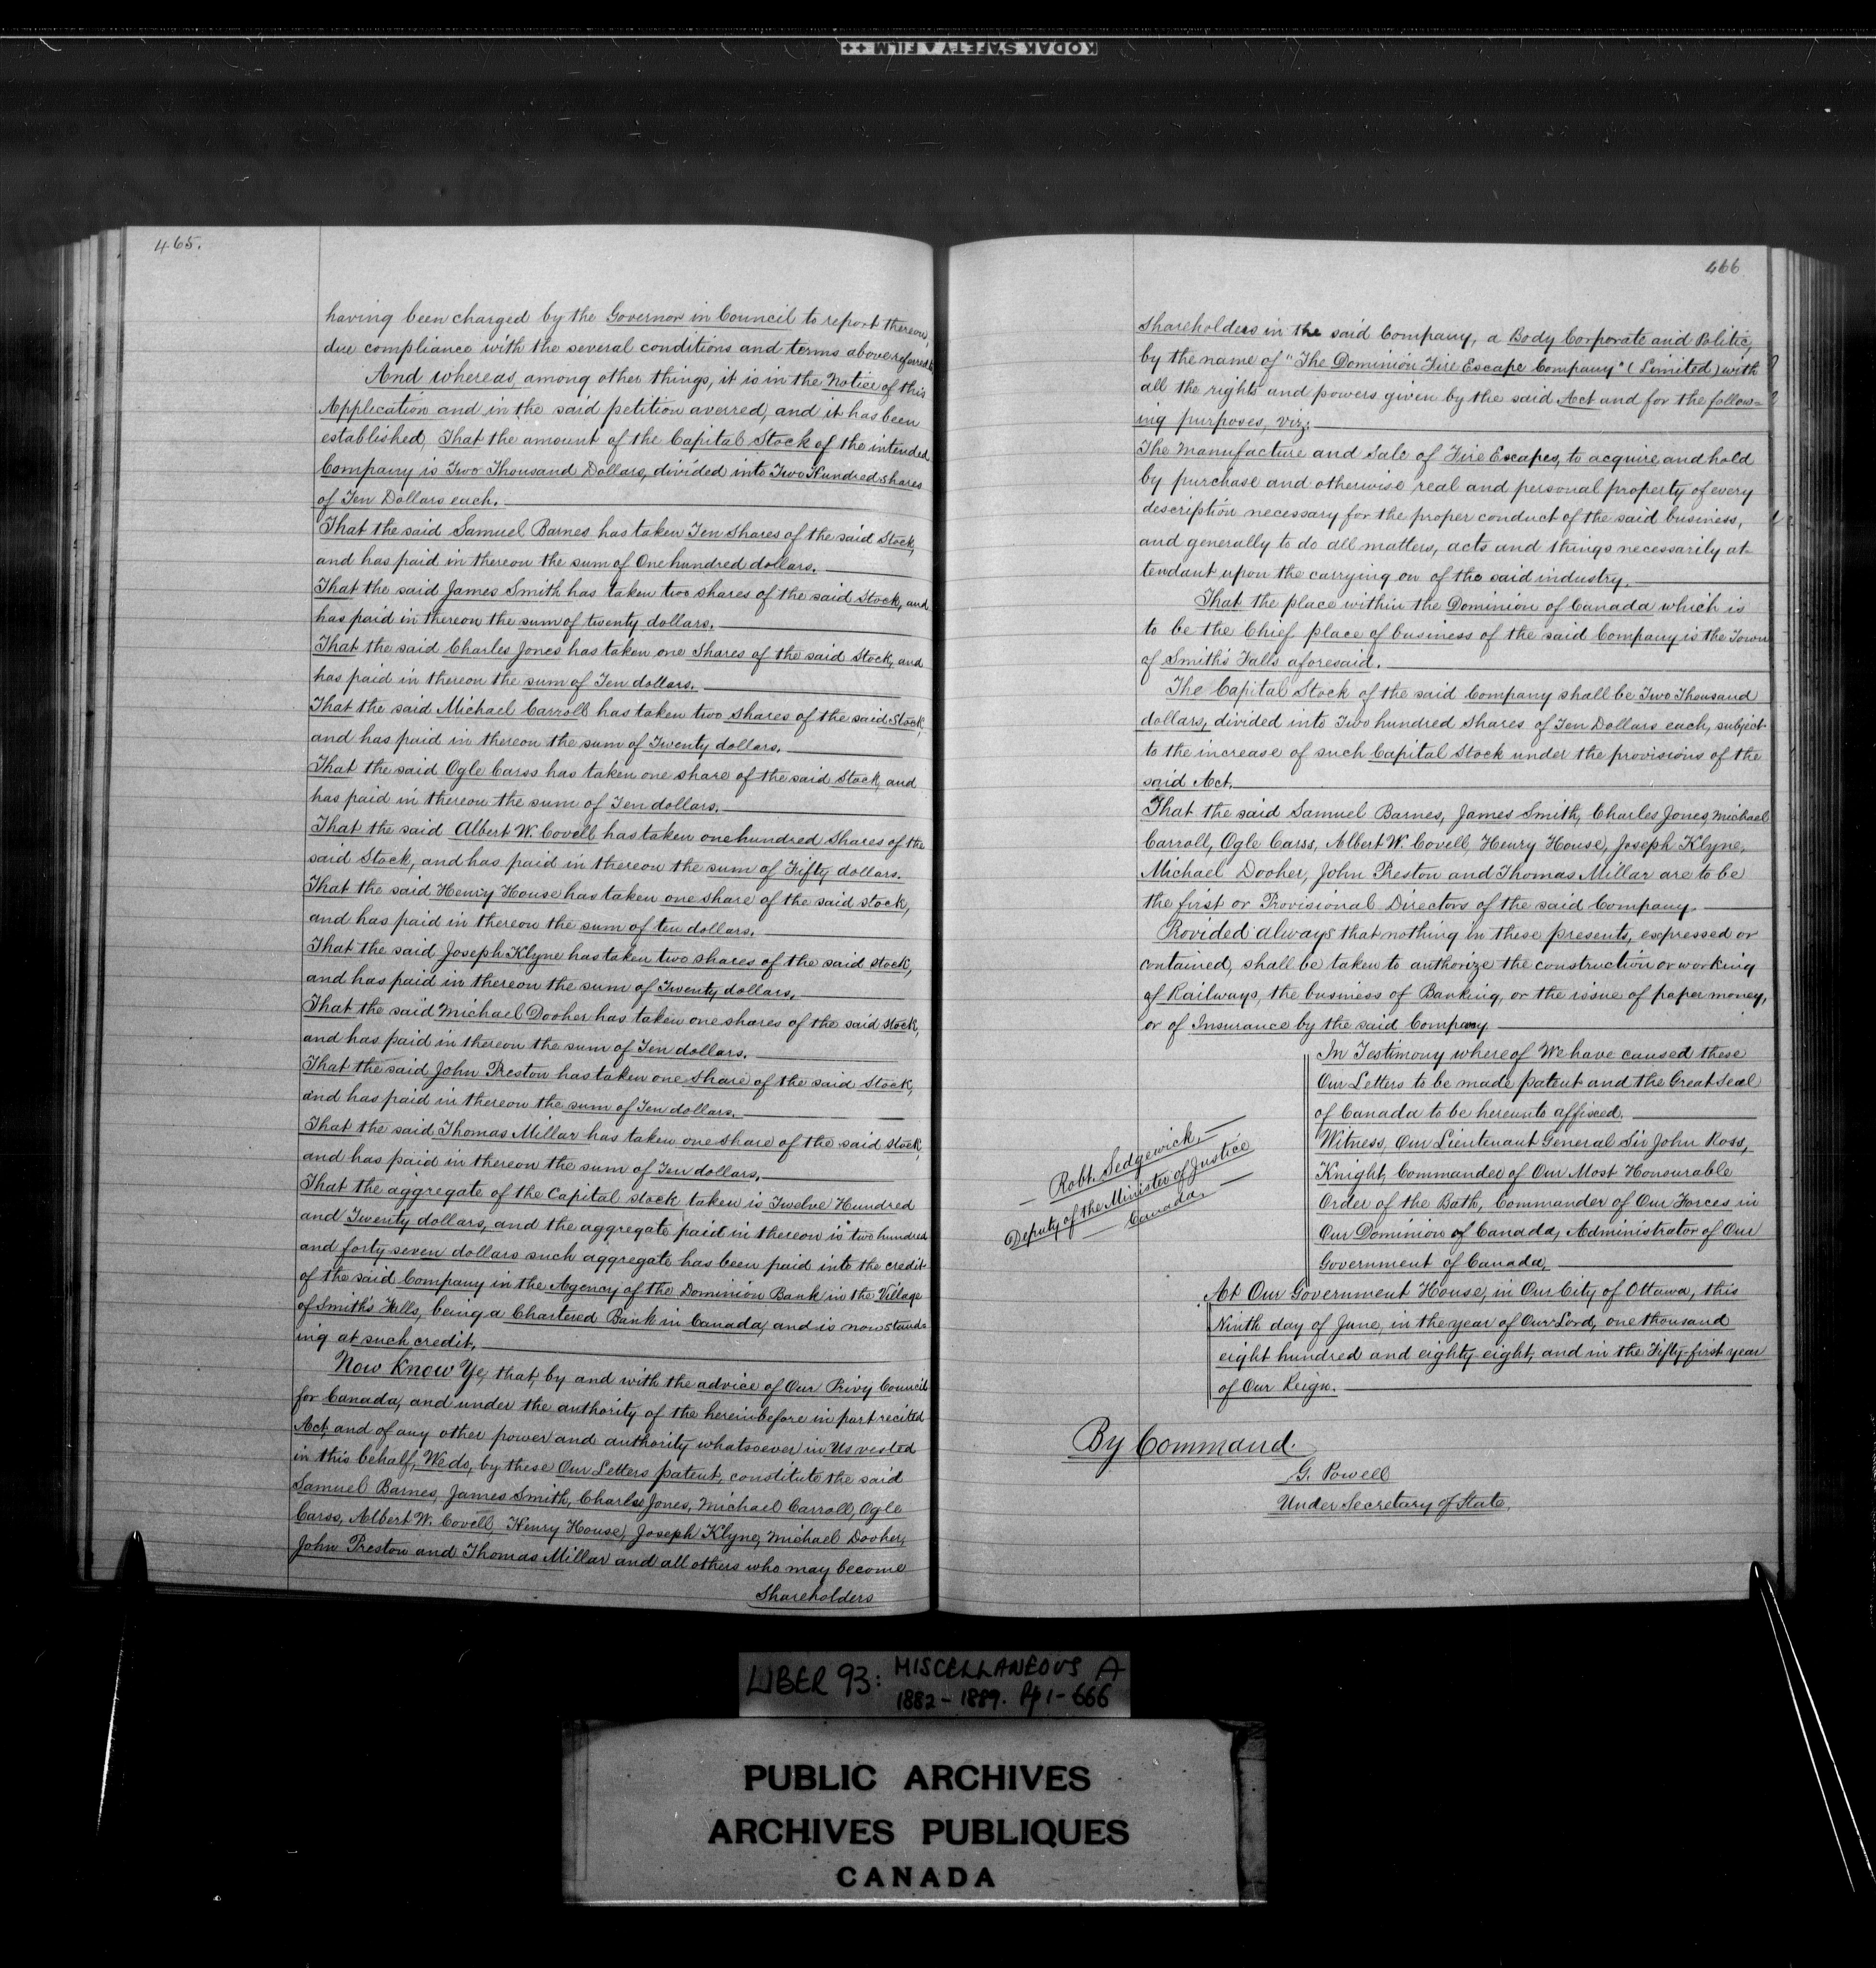 KODAK SAFETY ▲ FILM ++
465.
having been charged by the Governor in Council to report thereon,
due compliance with the several conditions and terms above referred to
And whereas, among other things, it is in the Notice of this
Application and in the said petition averred, and it has been
established, That the amount of the Capital Stock of the intended
Company is Two Thousand Dollars, divided into Two Hundred shares
of Ten Dollars each.
That the said Samuel Barnes has taken Ten shares of the said Stock,
and has paid in thereon the sum of One hundred dollars.
That the said James Smith has taken two shares of the said Stock, and
has paid in thereon the sum of twenty dollars.
That the said Charles Jones has taken one Shares of the said Stock, and
has paid in thereon the sum of Ten dollars.
That the said Michael Carroll has taken two shares of the said Stock,
and has paid in thereon the sum of Twenty dollars.
That the said Ogle Carss has taken one share of the said Stock, and
has paid in thereon the sum of Ten dollars.
That the said Albert W. Covell has taken one hundred Shares of the
said Stock, and has paid in thereon the sum of Fifty dollars.
That the said Henry House has taken one share of the said stock,
and has paid in thereon the sum of ten dollars.
That the said Joseph Klyne has taken two shares of the said stock,
and has paid in thereon the sum of Twenty dollars.
That the said Michael Dooher has taken one shares of the said stock,
and has paid in thereon the sum of Ten dollars.
That the said John Preston has taken one share of the said Stock,
and has paid in thereon the sum of Ten dollars.
That the said Thomas Millar has taken one share of the said stock,
and has paid in thereon the sum of Ten dollars.
That the aggregate of the Capital stock taken is Twelve Hundred
and Twenty dollars, and the aggregate paid in thereon is two hundred
and forty seven dollars such aggregate has been paid into the credit
of the said Company in the Agency of the Dominion Bank in the Village
of Smith's Falls, being a Chartered Bank in Canada, and is now stand=
ing at such credit.
Now Know Ye, that, by and with the advice of Our Privy Council
for Canada, and under the authority of the hereinbefore in part recited
Act, and of any other power and authority whatsoever in Us vested
in this behalf, We do, by these Our Letters patent, constitute the said
Samuel Barnes, James Smith, Charles Jones, Michael Carroll, Ogle
Carss, Albert W. Covell, Henry House, Joseph Klyne, Michael Dooher,
John Preston and Thomas Millar and all others who may become
Shareholders
466
Shareholders in the said Company, a Body Corporate and Politic,
by the name of "The Dominion Fire Escape Company" (Limited) with
all the rights and powers given by the said Act and for the follow=
ing purposes, viz:
The Manufacture and Sale of Fire Escapes, to acquire and hold
by purchase and otherwise real and personal property of every
description necessary for the proper conduct of the said business,
and generally to do all matters, acts and things necessarily at-
tendant upon the carrying on of the said industry.
That the place within the Dominion of Canada which is
to be the Chief place of business of the said Company is the Town
of Smith's Falls aforesaid.
The Capital Stock of the said Company shall be Two Thousand
dollars, divided into Two hundred Shares of Ten Dollars each, subject
to the increase of such Capital Stock under the provisions of the
said Act.
That the said Samuel Barnes, James Smith, Charles Jones, Michael
Carroll, Ogle Carss, Albert W. Covell, Henry House, Joseph Klyne,
Michael Dooher, John Preston and Thomas Millar are to be
the first or Provisional Directors of the said Company.
Provided always that nothing in these presents, expressed or
contained, shall be taken to authorize the construction or working
of Railways, the business of Banking, or the issue of paper money,
or of Insurance by the said Company
In Testimony whereof We have caused these
Our Letters to be made patent and the Great Seal
of Canada to be hereunto affixed.
Witness, Our Lieutenant General Sir John Ross,
Knight, Commander of Our Most Honourable
Order of the Bath, Commander of Our Forces in
Our Dominion of Canada, Administrator of Our
Government of Canada,
Robt. Sedgewick,
Deputy of the Minister of Justice
Canada.
At Our Government House, in Our City of Ottawa, this
Ninth day of June, in the year of Our Lord, one thousand
eight hundred and eighty eight, and in the Fifty-first year
of Our Reign.
By Command.
G. Powell
Under Secretary of State.
LIBER 93: MISCELLANEOUS A
1882-1889. Pp 1-666
PUBLIC ARCHIVES
ARCHIVES PUBLIQUES
CANADA